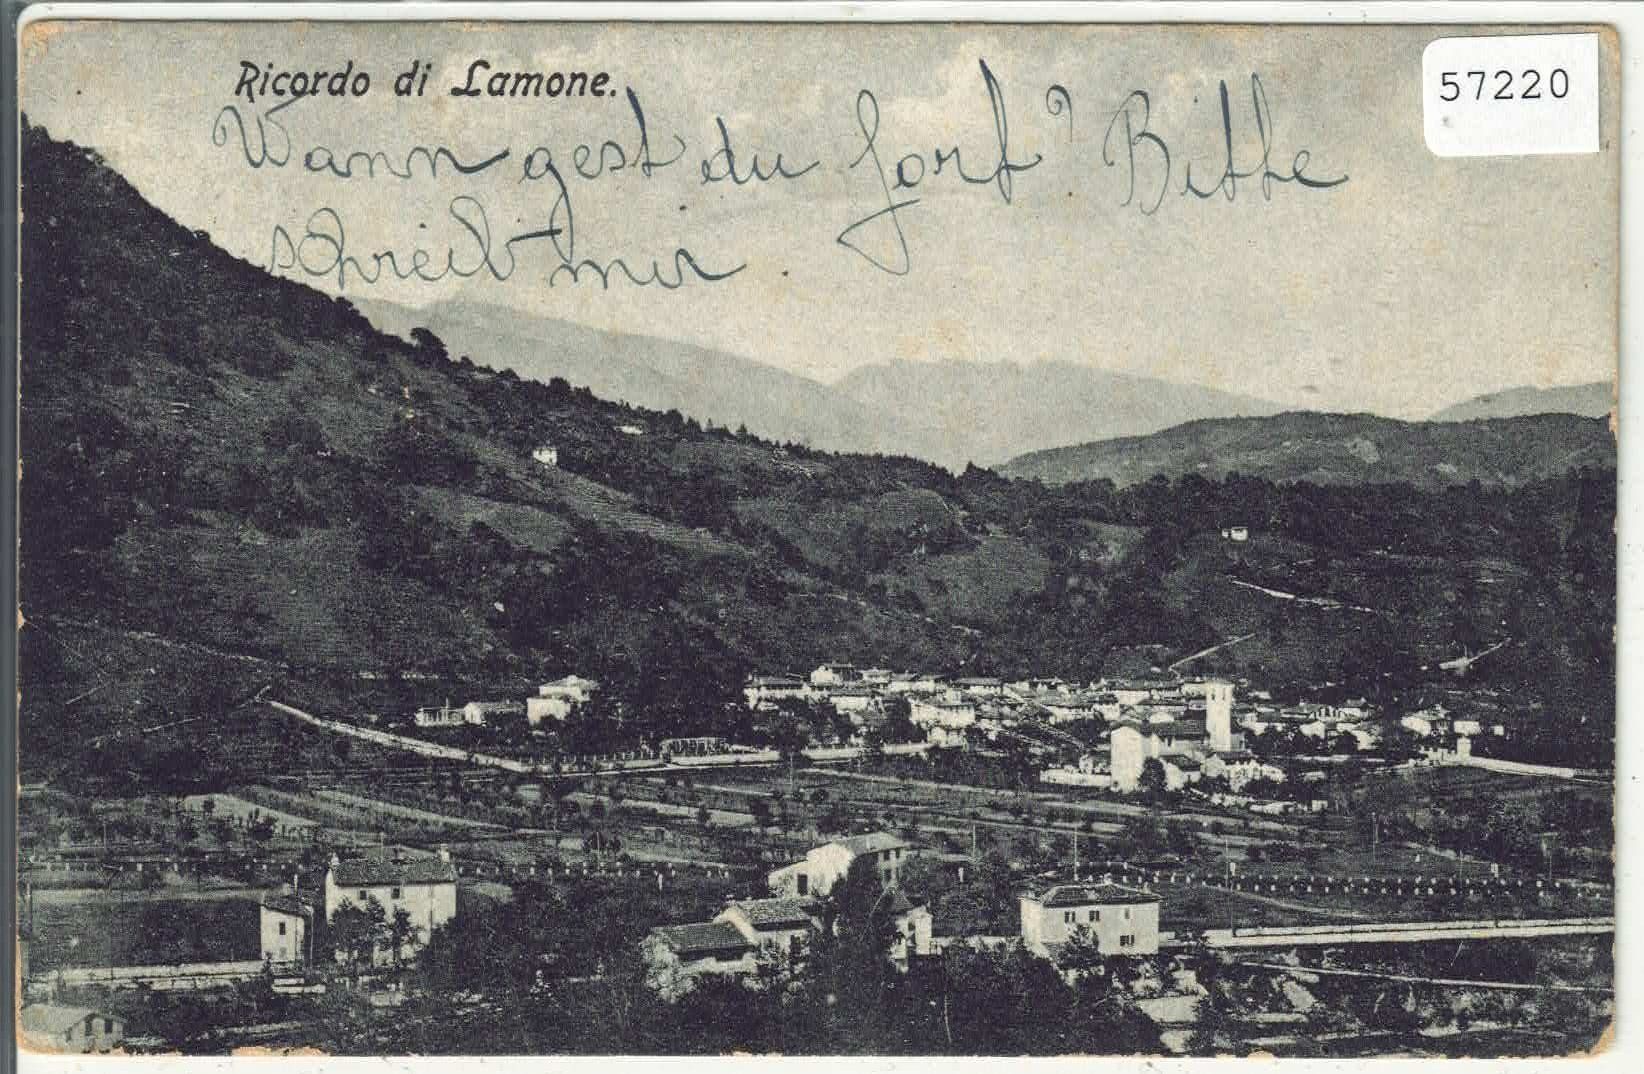 Ricordo di Lamone.
57220
Wann gest du fort? Bitte
schreib mir.